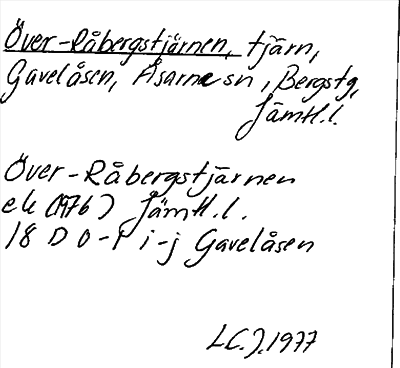 Över-Råbergstjärnen, tjärn,
Gavelåsen, Åsarne sn, Bergs tg,
Jämtl.l.
Över-Råbergstjärnen
ek (1976) Jämtl.l.
18 D 0-1 i-j Gavelåsen
L.C.J. 1977